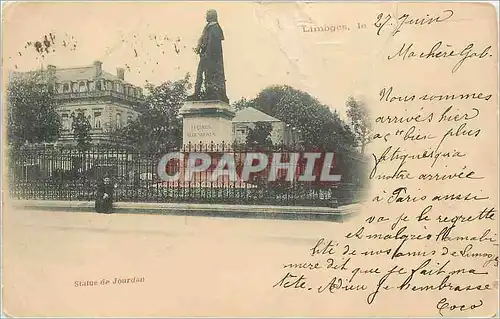 Limoges, le 27 Juin
Ma chère Gab.
Nous sommes
arrivés hier
bien plus
fatigués qu'a
notre arrivée
à Paris aussi
je le regrette
et malgré l'amabi
lité de nos amis de Limoges
mère dit que je fait ma
tête. Adieu je t'embrasse
Coco
CARPHIL
Statue de Jourdan